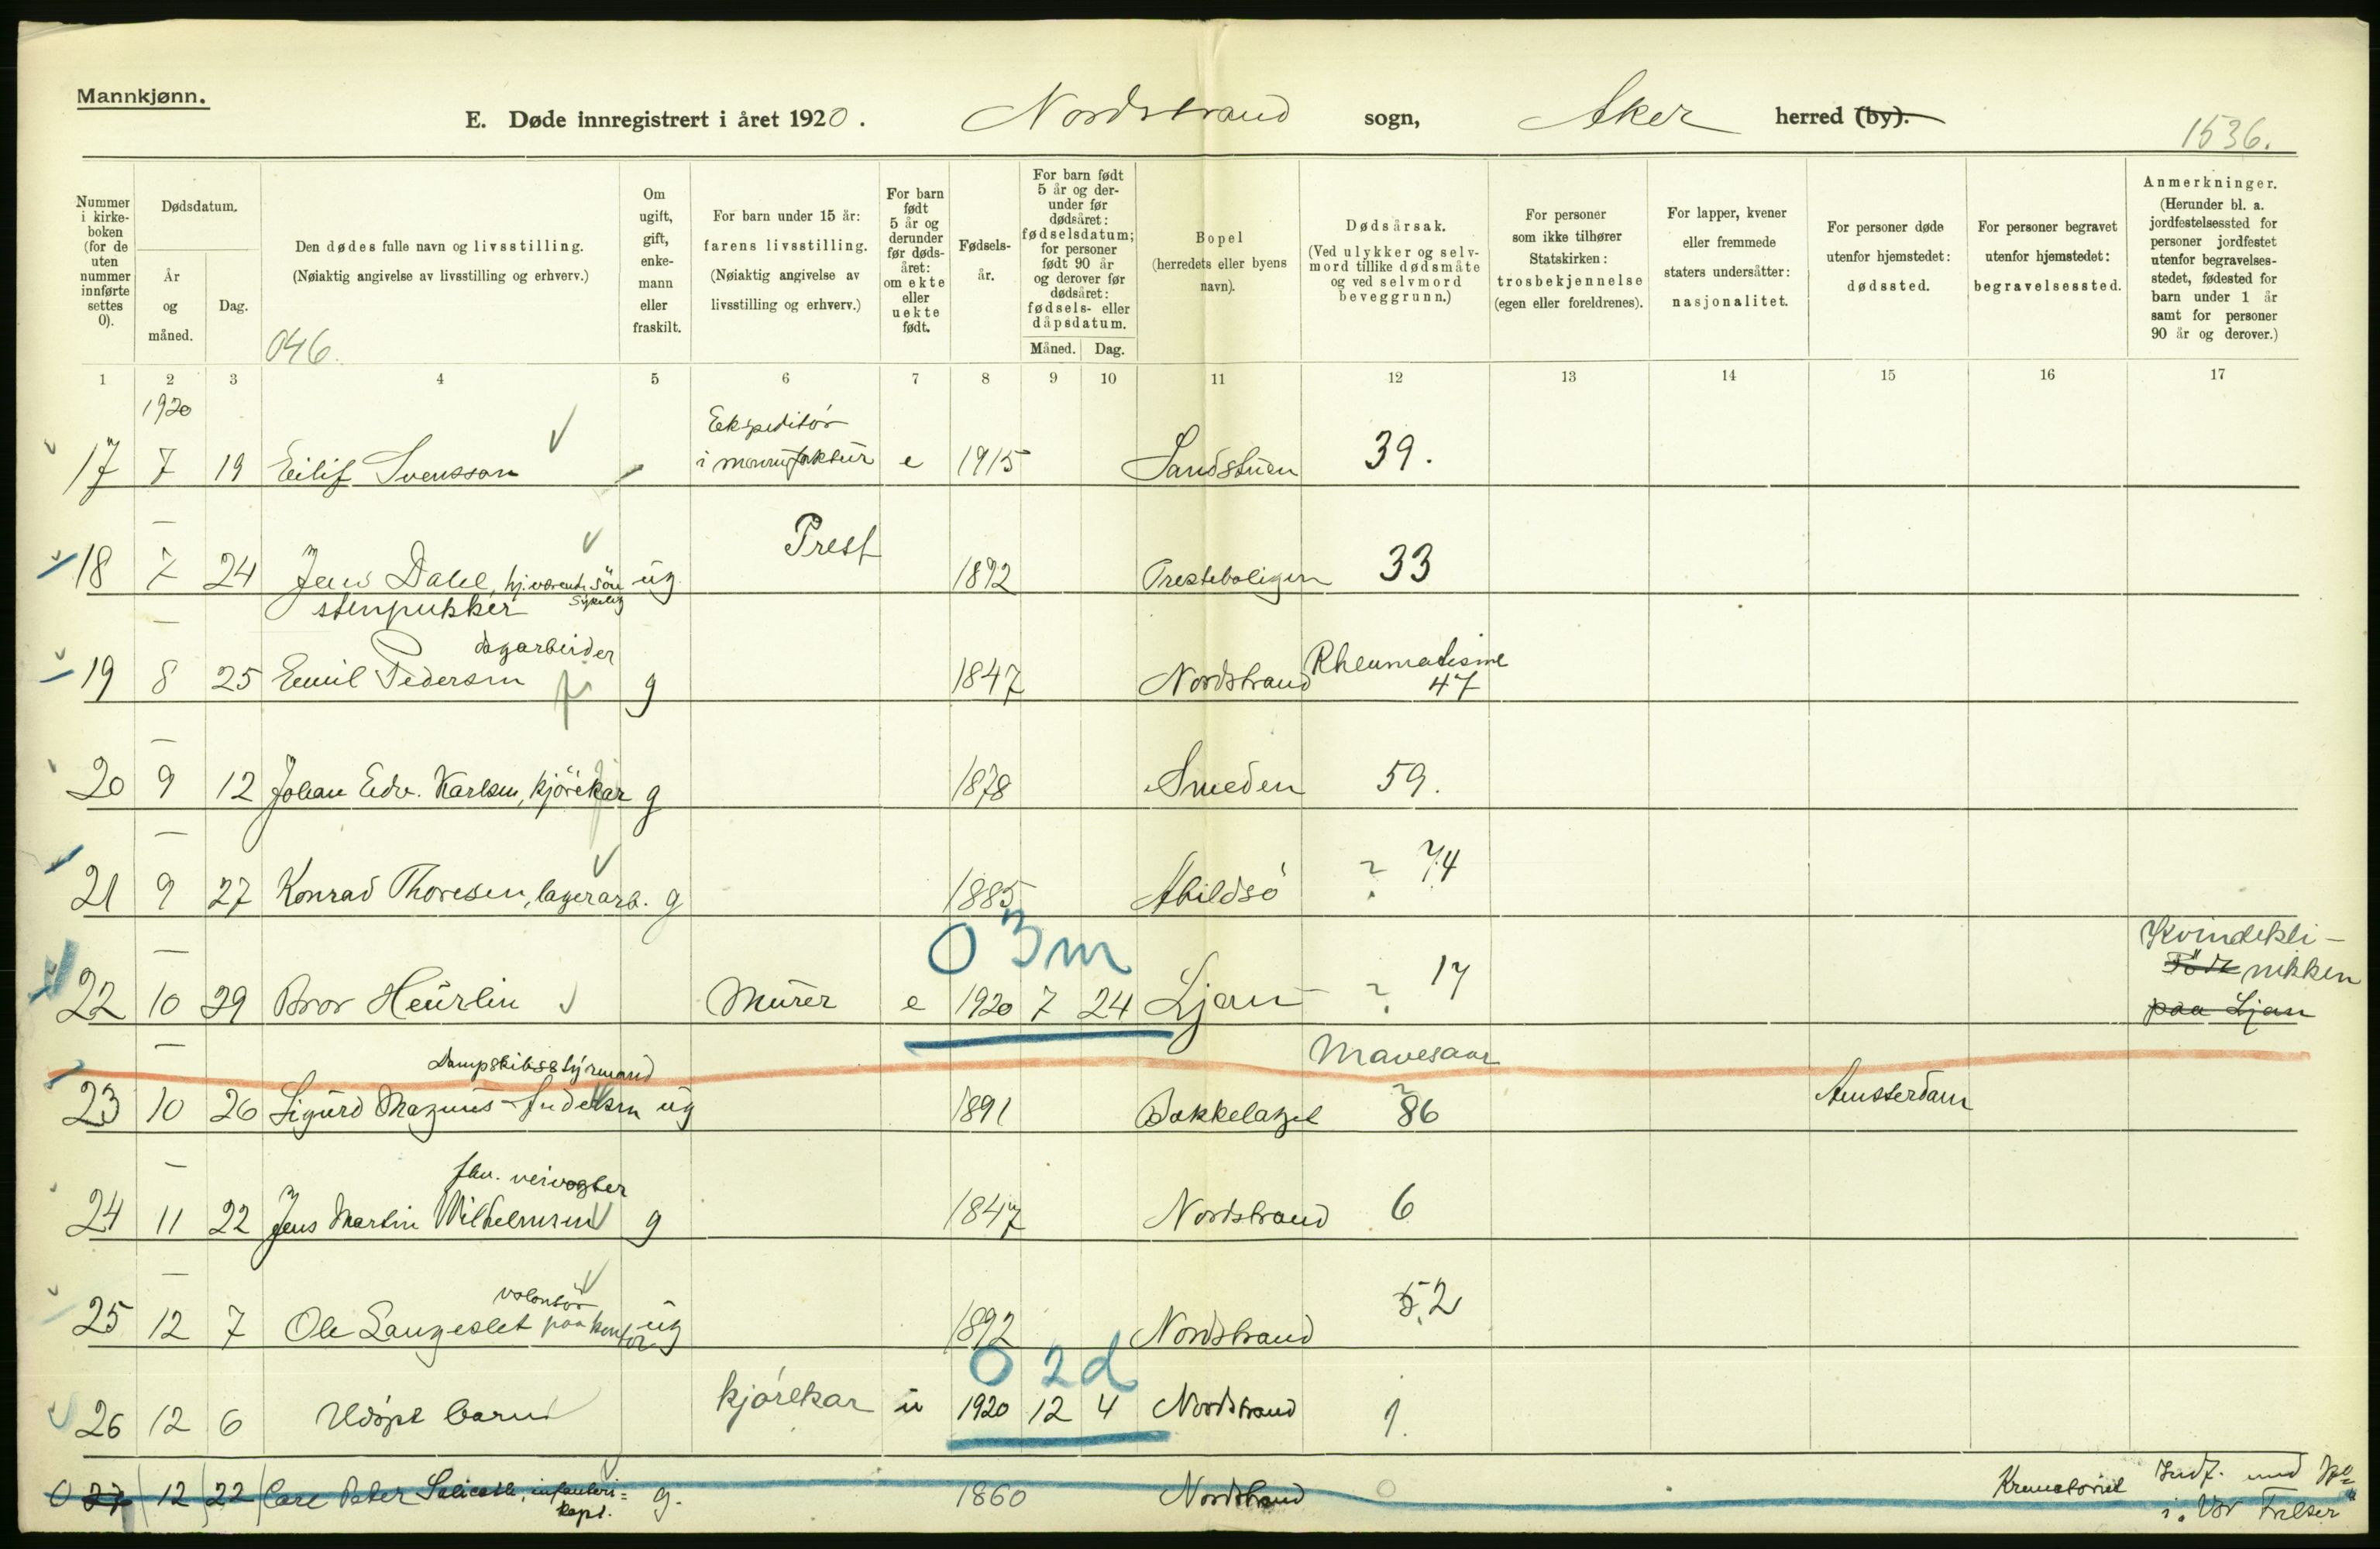 Mannkjønn.
E. Døde innregistrert i året 1920. Nordstrand sogn, Aker herred (by).
1536.
Nummer i kirkeboken (for de uten nummer innførte settes 0).
Dødsdatum.
År og måned.
Dag.
Den dødes fulle navn og livsstilling.
(Nøiaktig angivelse av livsstilling og erhverv.)
046.
Om ugift, gift, enkemann eller fraskilt.
For barn under 15 år: farens livsstilling.
(Nøiaktig angivelse av livsstilling og erhverv.)
For barn født 5 år og derunder før dødsåret: om ekte eller uekte født.
Fødselsår.
For barn født 5 år og derunder før dødsåret: fødselsdatum; for personer født 90 år og derover før dødsåret: fødsels- eller dåpsdatum.
Måned. Dag.
Bopel
(herredets eller byens navn).
Dødsårsak.
(Ved ulykker og selvmord tillike dødsmåte og ved selvmord beveggrunn.)
For personer som ikke tilhører Statskirken: trosbekjennelse (egen eller foreldrenes).
For lapper, kvener eller fremmede staters undersåtter: nasjonalitet.
For personer døde utenfor hjemstedet: dødssted.
For personer begravet utenfor hjemstedet: begravelsessted.
Anmerkninger.
(Herunder bl. a. jordfestelsessted for personer jordfestet utenfor begravelsesstedet, fødested for barn under 1 år samt for personer 90 år og derover.)
1 2 3 4 5 6 7 8 9 10 11 12 13 14 15 16 17
1920
17 7 19 Eilif Svensson - Ekspeditør i manufaktur e 1915 Sandstuen 39.
18 7 24 Jens Dahl, hj.værende søn sykelig ug Prest 1892 Presteboligen 33
stenpukker
dagarbeider
19 8 25 Emil Pedersen g 1847 Nordstrand Rheumatisme 47
20 9 12 Johan Edv. Karlsen, kjørekar g 1878 Smeden 59.
21 9 27 Konrad Thoresen, lagerarb. g 1885 Abildsø ? 74
0 3m
22 10 29 Bror Heurlin Murer e 1920 7 24 Ljan ? 17 Kvindekli-
Føde nikken
paa Ljan
Dampskibsstyrmand Mavesaar
23 10 26 Sigurd Magnus ug 1891 Bakkelaget ? 86 Amsterdam
fhv. veivogter
24 11 22 Jens Martin Wilhelmsen g 1847 Nordstrand 6
volontør
25 12 7 Ole Langeslet paa kontor ug 1892 Nordstrand 52
0 2d
26 12 6 Udøpt barn kjørekar u 1920 12 4 Nordstrand 1.
0 27 12 22 Carl Peter infanteri= g. 1860 Nordstrand 0 Krematoriet Indf. med
kapt. i "Vor Frelser"